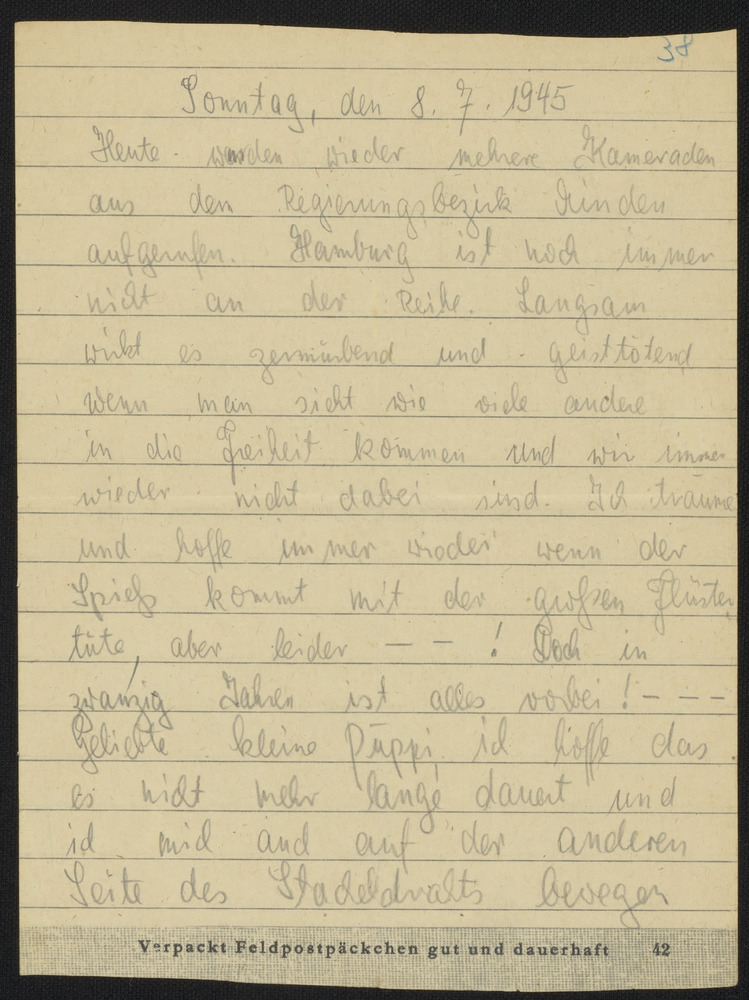 38
Sonntag, den 8. 7. 1945
Heute wurden wieder mehrere Kameraden
aus dem Regierungsbezirk Minden
aufgerufen. Hamburg ist noch immer
nicht an der Reihe. Langsam
wirkt es zermürbend und geisttötend
wenn man sieht wie viele andere
in die Freiheit kommen und wir immer
wieder nicht dabei sind. Ich träume
und hoffe immer wieder wenn der
Spieß kommt mit der großen Flüster
tüte, aber leider — — ! Doch in
zwanzig Jahren ist alles vorbei! – – –
Geliebte kleine Puppi, ich hoffe das
es nicht mehr lange dauert und
ich mich auch auf der anderen
Seite des Stacheldrahts bewegen
Verpackt Feldpostpäckchen gut und dauerhaft 42